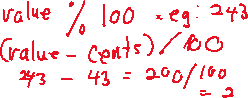 value % 100 eg: 243
(value - cents) / 100
243 - 43 = 200/100
= 2